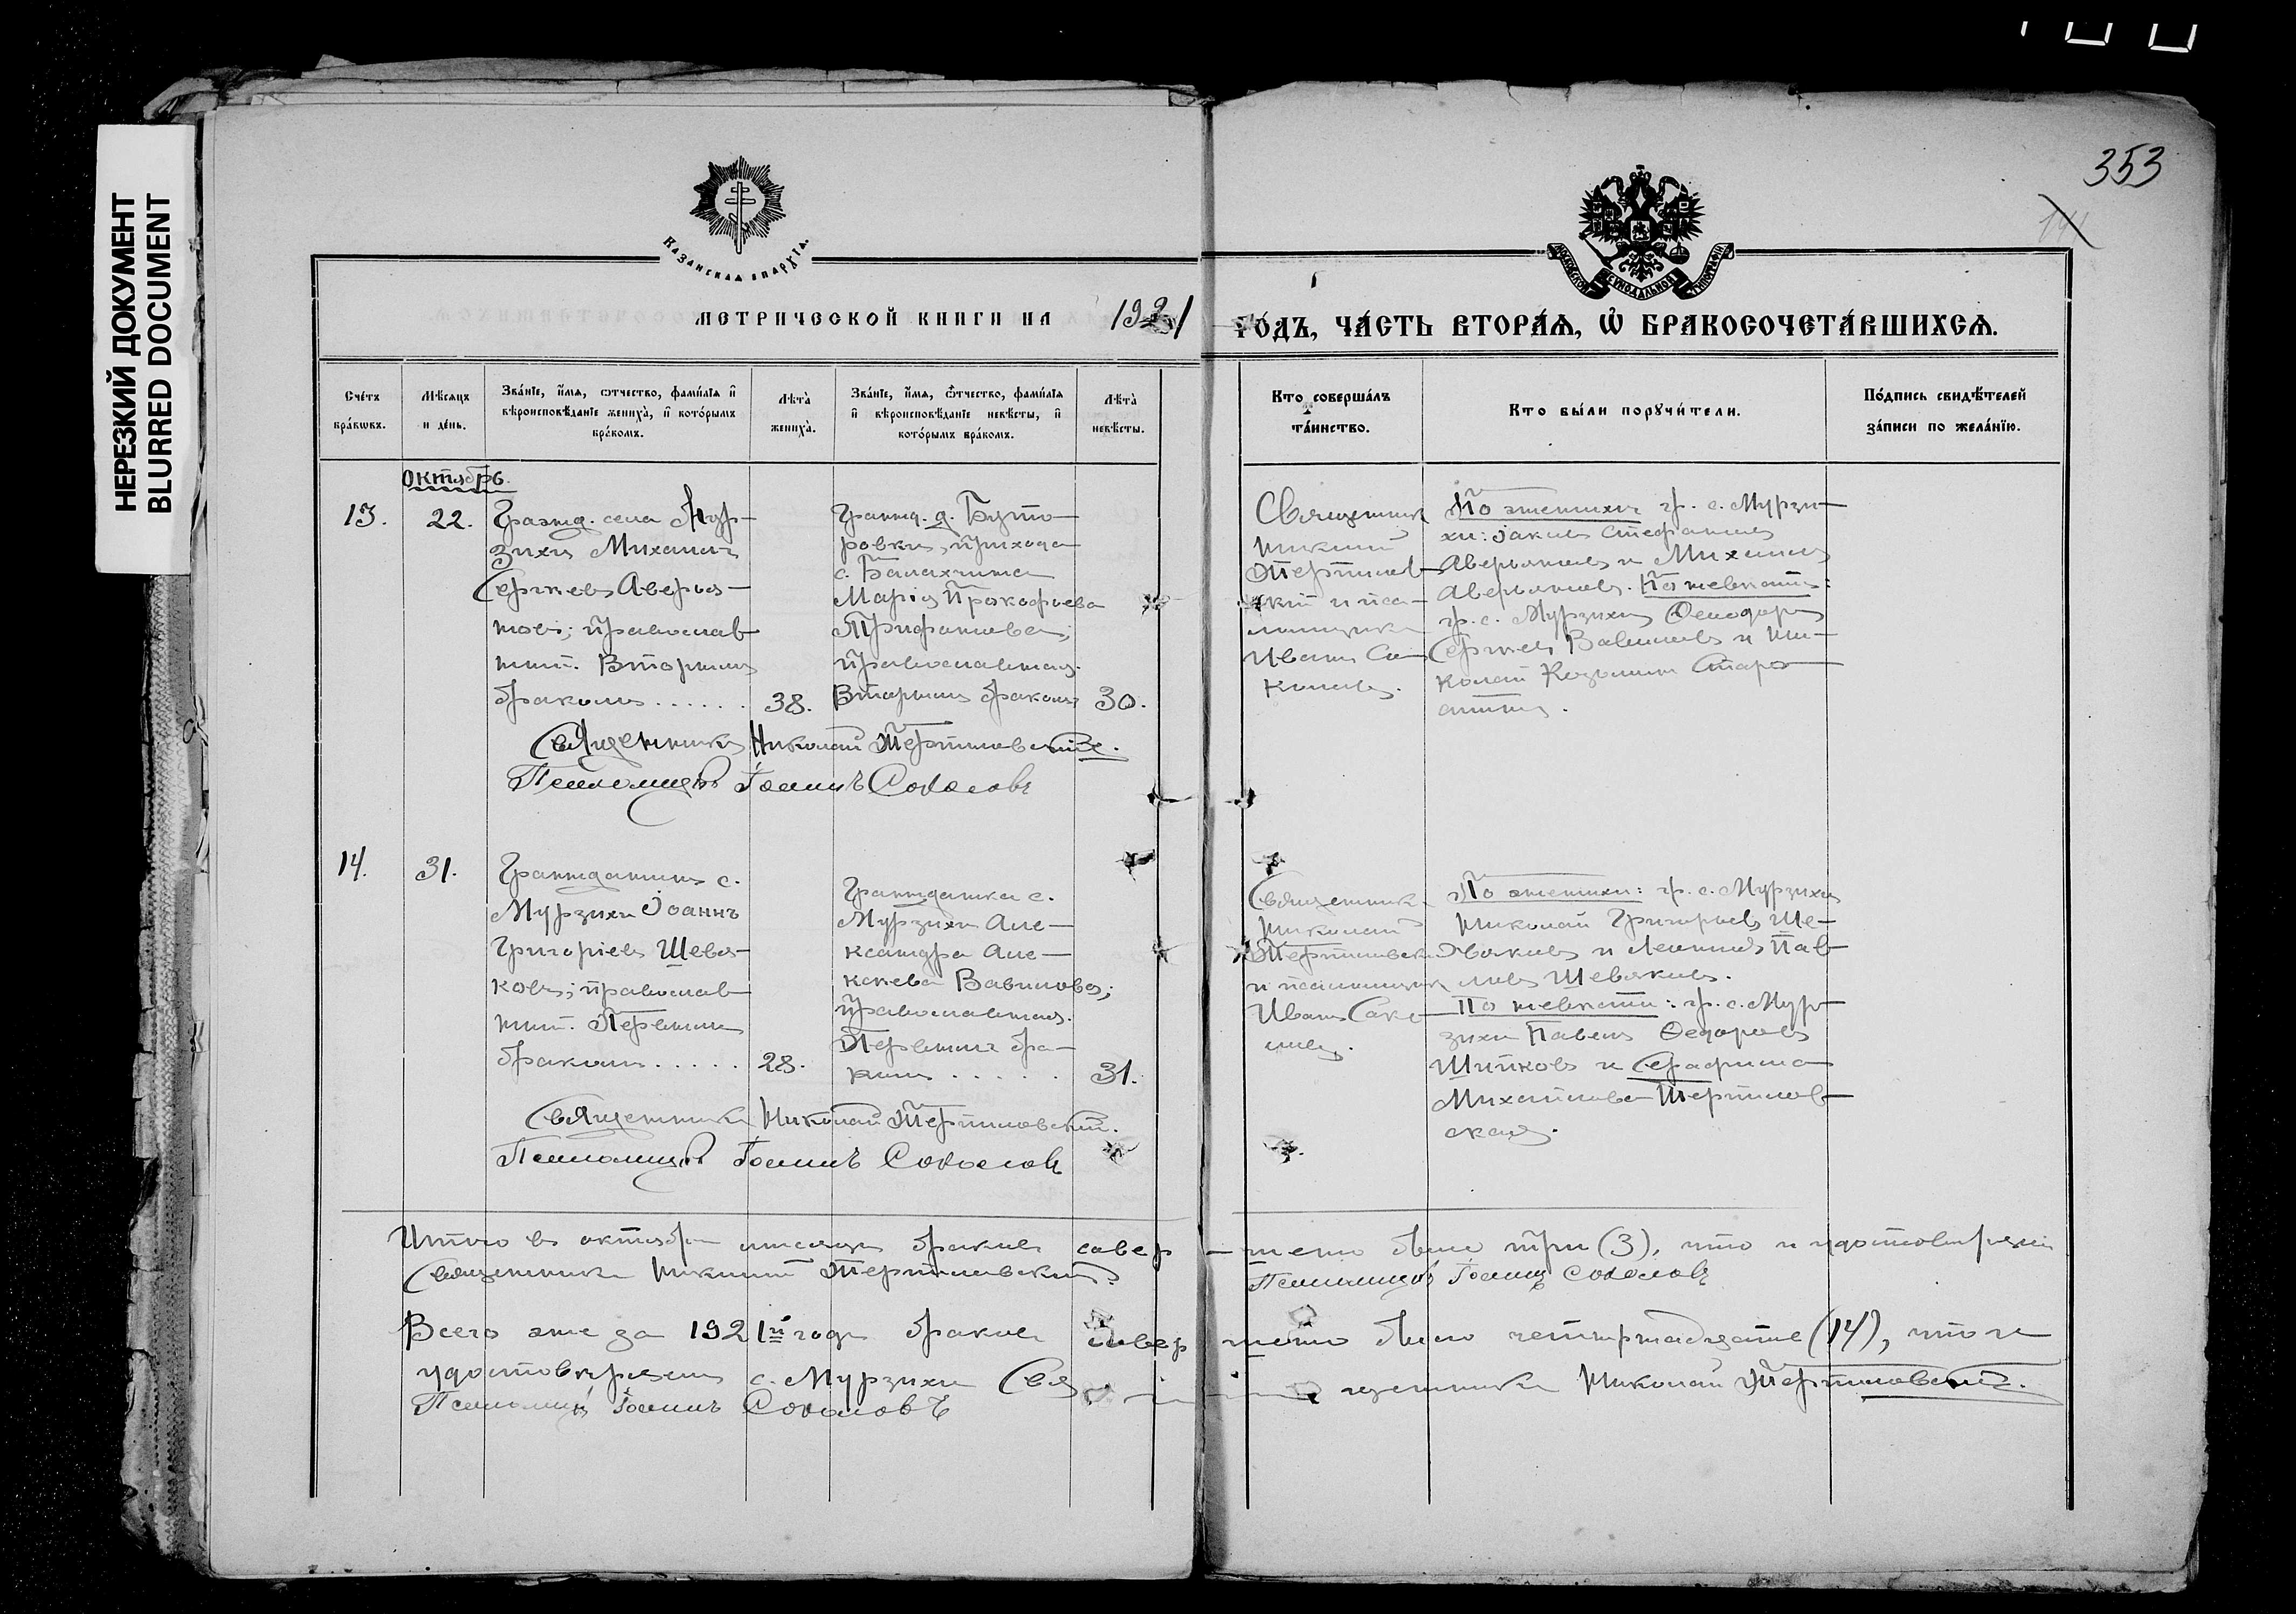 НЕРЕЗКИЙ ДОКУМЕНТ
BLURRED DOCUMENT
353
141
Казанская епархїа.
Московской Сѵнодальной Типографїи
метрической книги на 1921
го́дъ, ча́сть втора́я, ѡ҆ бракосочета́вшихся.
Сче́тъ
бра́кѡвъ.
Мѣ́сяцъ
и де́нь.
Зва́нїе, и҆́мя, ѻ҆́тчество, фами́лїя и҆
вѣроисповѣ́данїе жениха̀, и҆ кото́рымъ
бра́комъ.
Лѣта̀
жениха̀.
Зва́нїе, и҆́мя, ѻ҆́тчество, фами́лїя
и҆ вѣроисповѣ́данїе невѣ́сты, и҆
кото́рымъ бра́комъ.
Лѣта̀
невѣ́сты.
Кто соверша́лъ
та́инство.
Кто бы́ли порꙋчи́тели.
По́дпись свидѣ́телей
за́писи по жела́нїю.
Октябрь.
13.
22.
Гражд. села Мур-
зихи Михаилъ
Сергиевъ Аверья-
новъ; православ
ный. Вторымъ
бракомъ . . . . . .
38.
Гражд. д. Буто-
ровки, прихода
с. Балахчина
Марія Прокофьева
Трифонова;
православная.
Вторымъ бракомъ
30.
Священник
Николай
Терминов-
скій и пса-
ломщикъ
Иванъ Со-
коловъ.
По женихи гр. с. Мурзи-
хи: Іаковъ Стефановъ
Аверьяновъ и Михаилъ
Аверьяновъ. По невѣсти:
гр. с. Мурзихи Феодоръ
Сергиев Вавиловъ и Ни-
колай Козьмин Старо-
Священникъ Николай Терминовскій.
Псаломщикъ Іоаннъ Соколовъ
14.
31.
Гражданинъ с.
Мурзихи Іоаннъ
Григоріевъ Шевя-
ковъ; православ
ный. Первымъ
бракомъ . . . . .
28.
Гражданка с.
Мурзихи Але-
ксандра Але-
ксеева Вавилова;
православная.
Первымъ бра-
комъ . . . . .
31.
Священникъ
Николай
Терминовскій
и псаломщикъ
Иванъ Соко-
ловъ.
По женихи: гр. с. Мурзихи
Николай Григорьевъ Ше-
вяковъ и Леонидъ Пав-
ловъ Шевяковъ.
По невѣсти: гр. с. Мур-
зихи Павелъ Федоровъ
Шипковъ и Серафима
Михайлова Терминов-
ская.
Священникъ Николай Терминовскій.
Псаломщикъ Іоаннъ Соколовъ
Итого въ октябрѣ мѣсяцѣ браковъ совер-шено было три (3), что и удостовѣряемъ
Священникъ Николай Терминовскій.
Псаломщикъ Іоаннъ Соколовъ
Всего же за 1921й годъ браковъ совер шено было четырнадцать (14), что и
удостовѣряемъ с. Мурзихи Свя щенникъ Николай Терминовскій.
Псаломщикъ Іоаннъ Соколовъ